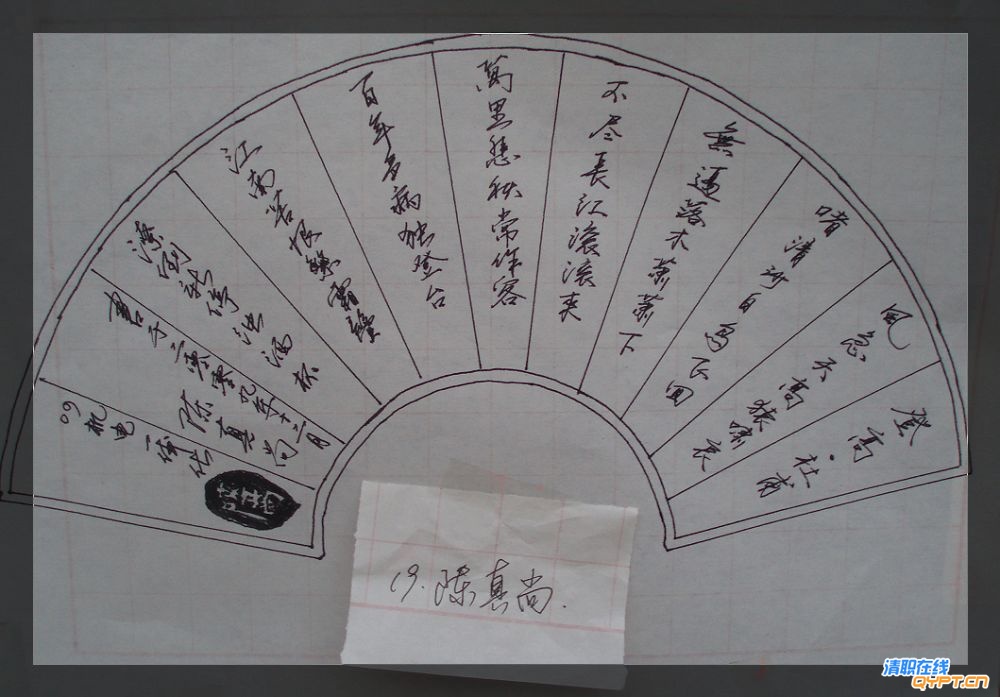 登高·杜甫
风急天高猿啸哀
啫清沙白鸟飞回
無邊落木萧萧下
不尽長江滚滚来
萬里悲秋常作客
百年多病独登台
江南苦恨繁霜鬓
潦倒新停浊酒杯
書于二零零九年十二月
陈真尚
09机电一体化
19.陈真尚.
清职在线
QYPT.CN